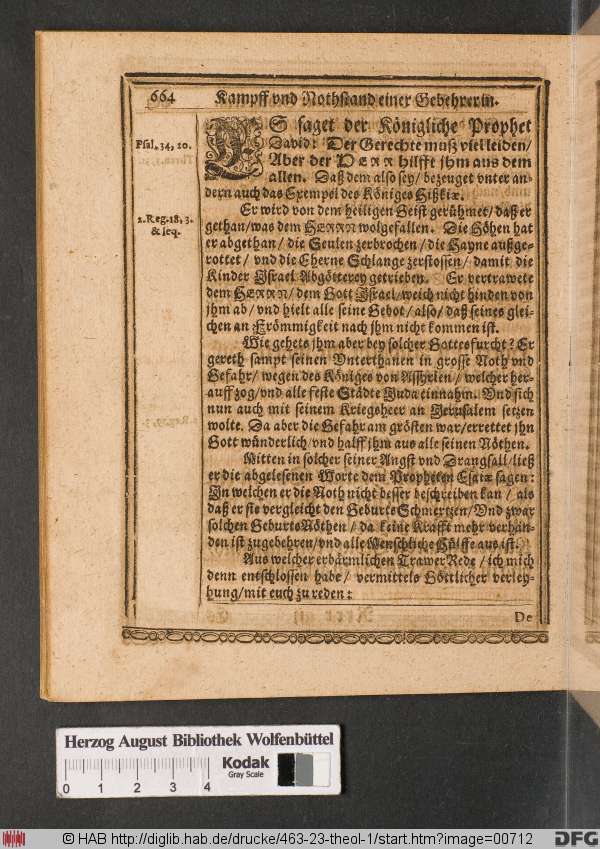 664 Kampff vnd Nothstand einer Gebehrerin.
Psal. 34, 10.
2. Reg. 18, 3.
& seq.
ES saget der Königliche Prophet
David: Der Gerechte muß viel leiden/
Aber der HERR hilfft jhm aus dem
allen. Daß dem also sey/ bezeuget vnter an-
dern auch das Exempel des Königes Hißkiæ.
Er wird von dem heiligen Geist gerühmet/ daß er
gethan/ was dem HERRN wolgefallen. Die Höhen hat
er abgethan/ die Seulen zerbrochen/ die Hayne außge-
rottet/ vnd die Eherne Schlange zerstossen/ damit die
Kinder Jsrael Abgötterey getrieben. Er vertrawete
dem HERRN/ dem Gott Jsrael/ weich nicht hinden von
jhm ab/ vnd hielt alle seine Gebot/ also/ daß seines glei-
chen an Frömmigkeit nach jhm nicht kommen ist.
Wie gehets jhm aber bey solcher Gottesfurcht? Er
gereth sampt seinen Vnterthanen in grosse Noth vnd
Gefahr/ wegen des Königes von Assyrien/ welcher her-
auff zog/ vnd alle feste Städte Juda einnahm. Vnd sich
nun auch mit seinem Kriegsheer an Jerusalem setzen
wolte. Da aber die Gefahr am grösten war/ errettet jhn
Gott wünderlich/ vnd halff jhm aus alle seinen Nöthen.
Mitten in solcher seiner Angst vnd Drangsall/ ließ
er die abgelesenen Worte dem Propheten Esaiæ sagen:
Jn welchen er die Noth nicht besser beschreiben kan/ als
daß er sie vergleicht den Geburts Schmertzen/ Vnd zwar
solchen Geburts Nöthen/ da keine Krafft mehr verhan-
den ist zugebehren/ vnd alle Menschliche Hülffe aus ist.
Aus welcher erbärmlichen Trawer Rede/ ich mich
denn entschlossen habe/ vermittels Göttlicher verley-
hung/ mit euch zu reden:
De
Herzog August Bibliothek Wolfenbüttel
0 1 2 3 4
Kodak
Gray Scale
© HAB http://diglib.hab.de/drucke/463-23-theol-1/start.htm?image=00712
DFG